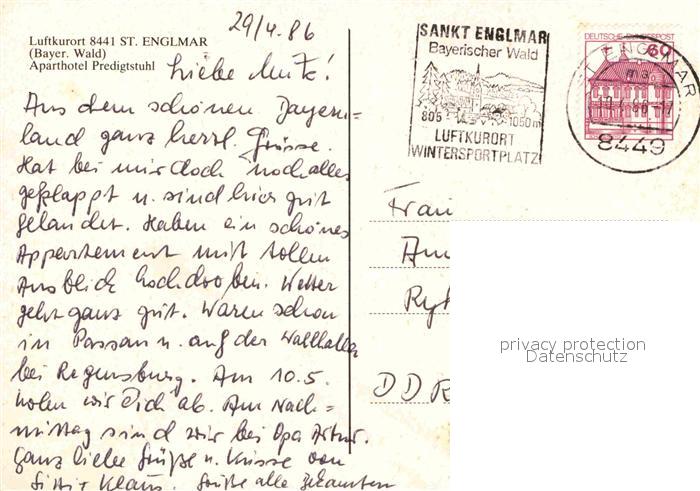 29/4.86
Luftkurort 8441 ST. ENGLMAR
(Bayer. Wald)
Aparthotel Predigtstuhl
Liebe Mutz!
Aus dem schönen Bayern=
land ganz herzl. Grüsse.
Hat bei mir doch noch alles
geklappt u. sind hier gut
gelandet. Haben ein schönes
Appartement mit tollem
Ausblick hochdroben. Wetter
geht ganz gut. Waren schon
in Passau u. auf der Wallhalla
bei Regensburg. Am 10.5.
holen wir Dich ab. Am Nach=
mittag sind wir bei Opa Artur.
Ganz liebe Grüße u. Küsse von
Klaus. Grüße alle Bekannten
SANKT ENGLMAR
Bayerischer Wald
805
1050 m
LUFTKURORT
WINTERSPORTPLATZ
DEUTSCHE BUNDESPOST
60
ENGLMAR
8449
Frau
DDR
privacy protection
Datenschutz